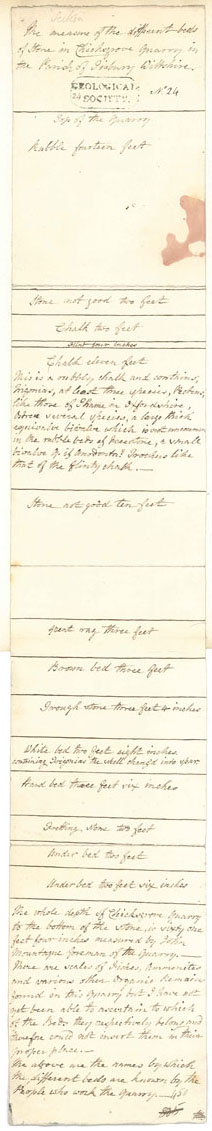 The measure of the different beds
of Stone in Chicksgrove Quarry in
the Parish of Tisbury Wiltshire.
GEOLOGICAL
SOCIETY
No 24
Top of the Quarry
Rubble fourteen feet
Stone not good two feet
Chalk two feet
Flint four inches
Chalk eleven feet
This is a rubbly chalk and contains,
Trigonias, at least three species, Pectens,
like those of Thame in Oxfordshire,
Ostrea several species, a large thick
equivalve bivalve which is not uncommon
in the rubble beds of a small
bivalve Q. if Anodonta? Trochus like
that of the flinty chalk.
Stone not good ten feet
Spent rag three feet
Brown bed three feet
Trough stone three feet 4 inches
White bed two feet eight inches
containing Trigonias the shell chang'd into spar
Hard bed three feet six inches
Fretting stone two feet
Under bed two feet
Under bed two feet six inches
The whole depth of Chicksgrove Quarry
to the bottom of the Stone, is sixty one
feet four inches measured by John
Montague foreman of the Quarry.
There are scales of Fishes, Ammonites
and various other Organic remains
found in this Quarry but I have not
not been able to ascertain to which
of the Beds they respectively belong and
therefore could not insert them in their
proper place.
The above are the names by which
the different beds are known by the
People who work the Quarry